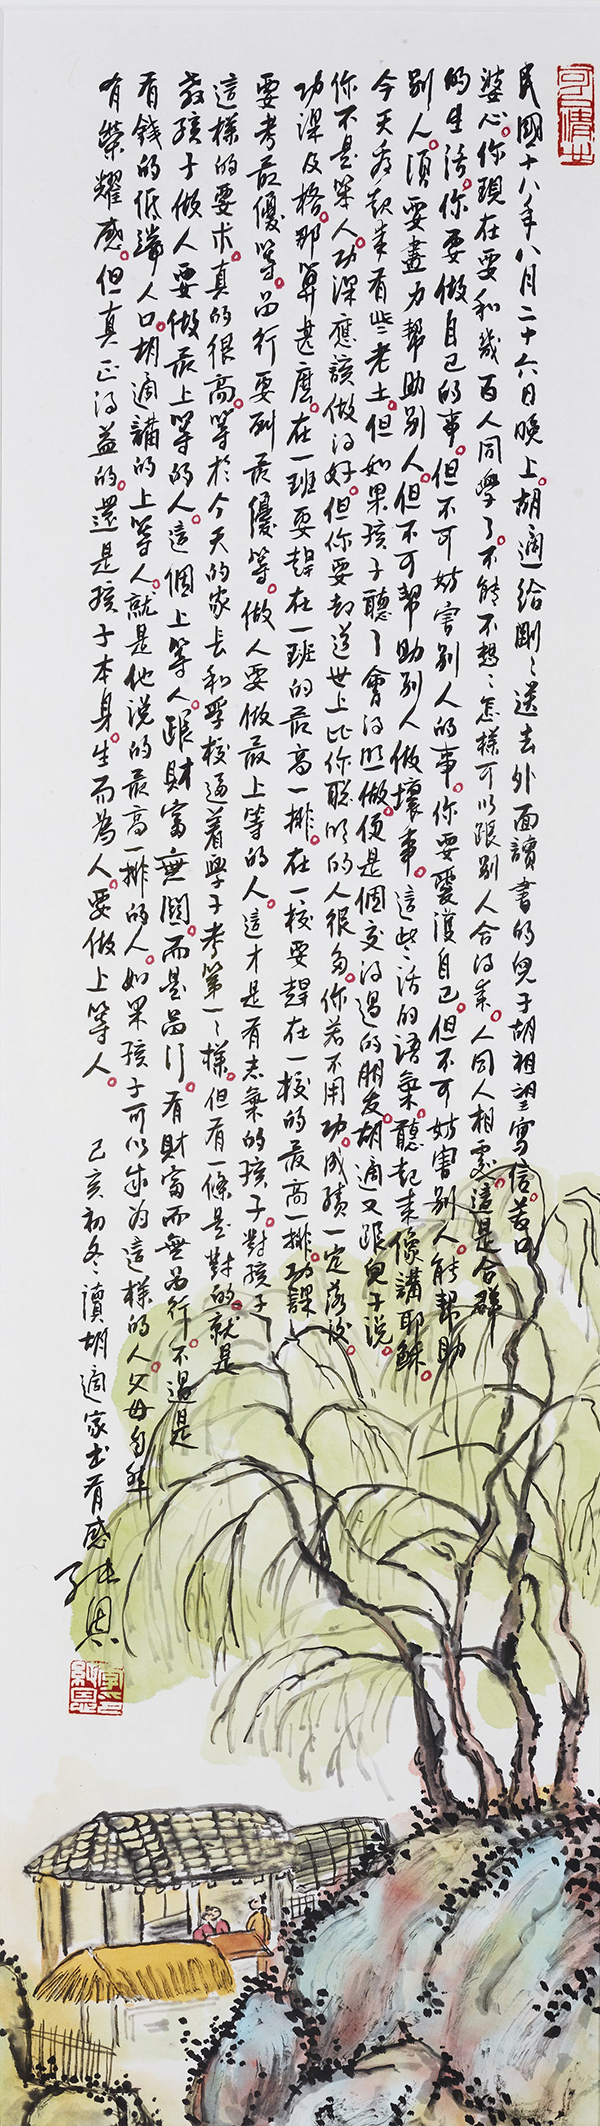 民國十八年八月二十六日晚上。胡適給剛剛送去外面讀書的兒子胡祖望寫信。苦口
婆心。你現在要和幾百人同學了。不能不想想怎樣可以跟別人合得來。人同人相處。這是合群
的生活。你要做自己的事。但不可妨害別人的事。你要愛護自己。但不可妨害別人。能幫助
別人。須要盡力幫助別人。但不可幫助別人做壞事。這些話的語氣。聽起來像講耶穌。
今天看起來有些老土。但如果孩子聽了會得照做。便是個交得過的朋友。胡適又跟兒子說。
你不是笨人。功課應該做得好。但你要知道世上比你聰明的人很多。你若不用功。成績一定落後。
功課及格。那算甚麼。在一班要趕在一班的最高一排。在一校要趕在一校的最高一排。功課
要考最優等。品行要列最優等。做人要做最上等的人。這才是有志氣的孩子。對孩子
這樣的要求。真的很高。等於今天的家長和學校逼着學子考第一一樣。但有一條是對的。就是
教孩子做人要做最上等的人。這個上等人。跟財富無關。而是品行。有財富而無品行。不過是
有錢的低端人口。胡適講的上等人。就是他說的最高一排的人。如果孩子可以成為這樣的人。父母自然
有榮耀感。但真正得益的。還是孩子本身。生而為人。要做上等人。
己亥初冬讀胡適家書有感
純恩